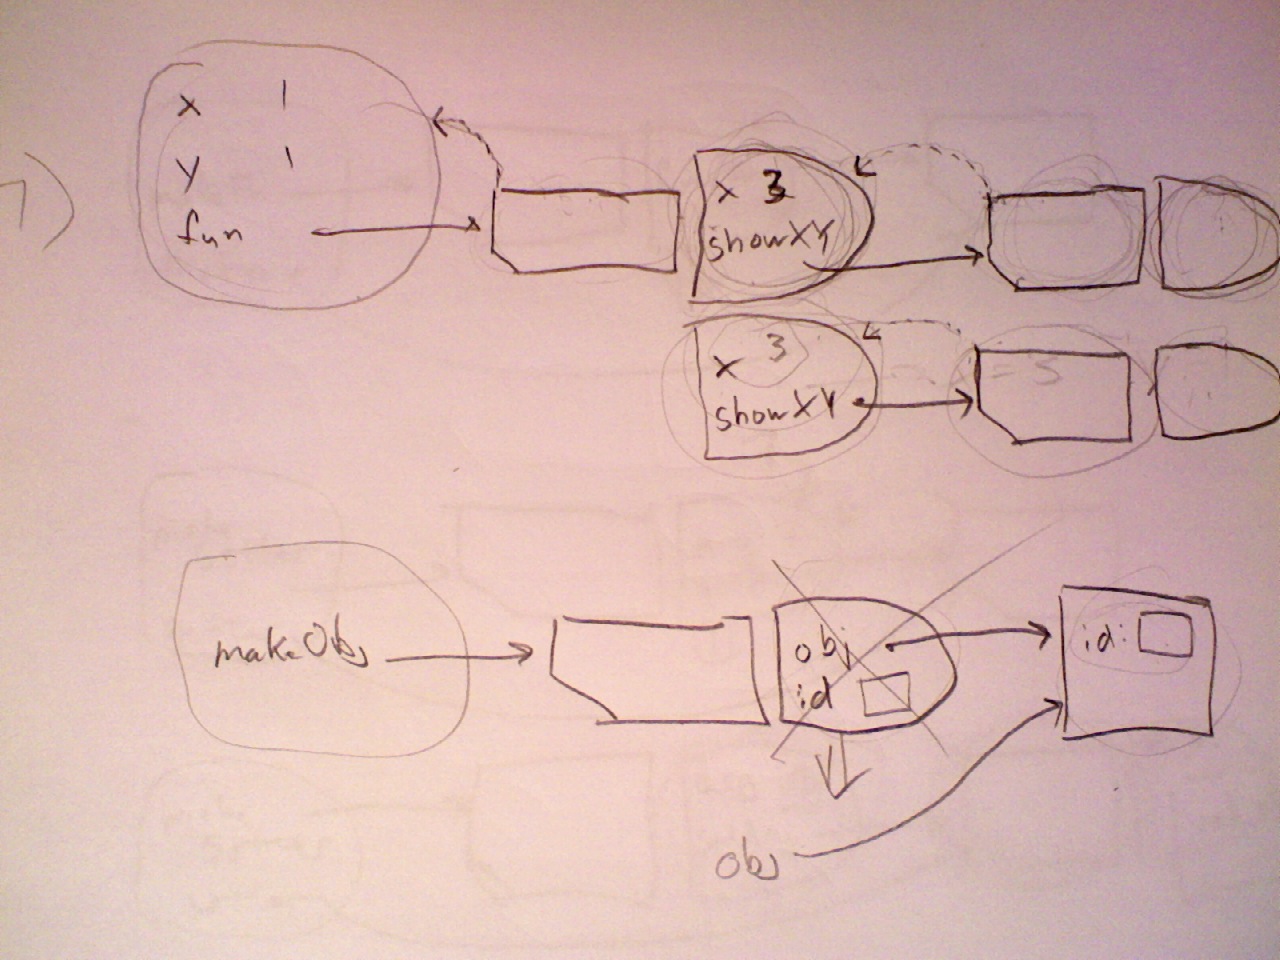 7)
x 1
y 1
fun
x 3
showXY
x 3
showXY
makeObj
obj
id
id:
obj